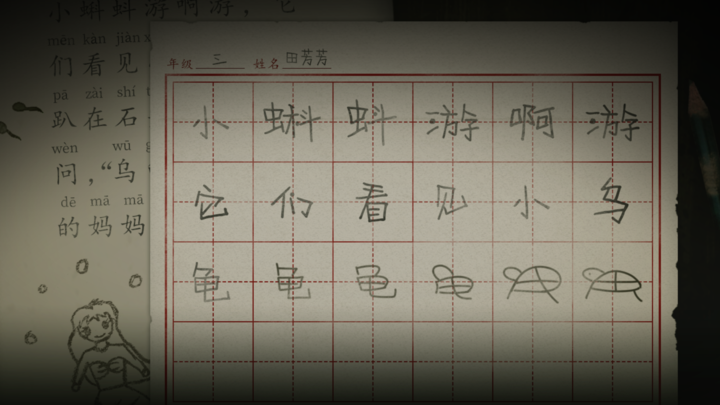 小蝌蚪游啊游，它
mén kàn jiàn x
们看见
pā zài shí t
趴在石
wèn wū g
问，“乌
dē mā mā
的妈妈
年级 三 姓名 田芳芳
小蝌蚪游啊游
它们看见小乌
龟龟龟